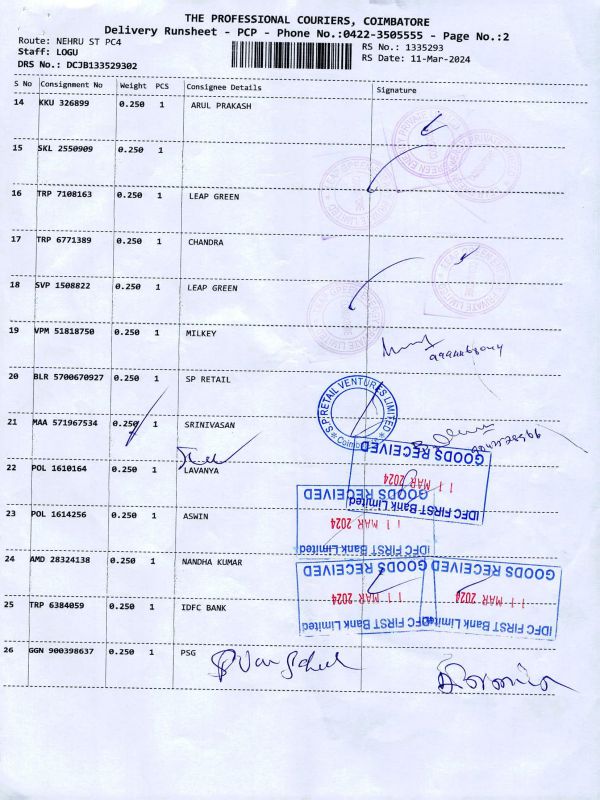 THE PROFESSIONAL COURIERS, COIMBATORE
Delivery Runsheet - PCP - Phone No.:0422-3505555 - Page No.:2
Route: NEHRU ST PC4
RS No.: 1335293
Staff: LOGU
RS Date: 11-Mar-2024
DRS No.: DCJB133529302
S No Consignment No Weight PCS Consignee Details Signature
14 KKU 326899 0.250 1 ARUL PRAKASH
15 SKL 2550909 0.250 1
16 TRP 7108163 0.250 1 LEAP GREEN
17 TRP 6771389 0.250 1 CHANDRA
18 SVP 1508822 0.250 1 LEAP GREEN
19 VPM 51818750 0.250 1 MILKEY
20 BLR 5700670927 0.250 1 SP RETAIL
S.P.RETAIL VENTURES LIMITED
21 MAA 571967534 0.250 1 SRINIVASAN
22 POL 1610164 0.250 1 LAVANYA
IDFC FIRST Bank Limited
11 MAR 2024
GOODS RECEIVED
23 POL 1614256 0.250 1 ASWIN
IDFC FIRST Bank Limited
11 MAR 2024
GOODS RECEIVED
24 AMD 28324138 0.250 1 NANDHA KUMAR
25 TRP 6384059 0.250 1 IDFC BANK
IDFC FIRST Bank Limited
11 MAR 2024
GOODS RECEIVED
IDFC FIRST Bank Limited
11 MAR 2024
GOODS RECEIVED
26 GGN 900398637 0.250 1 PSG